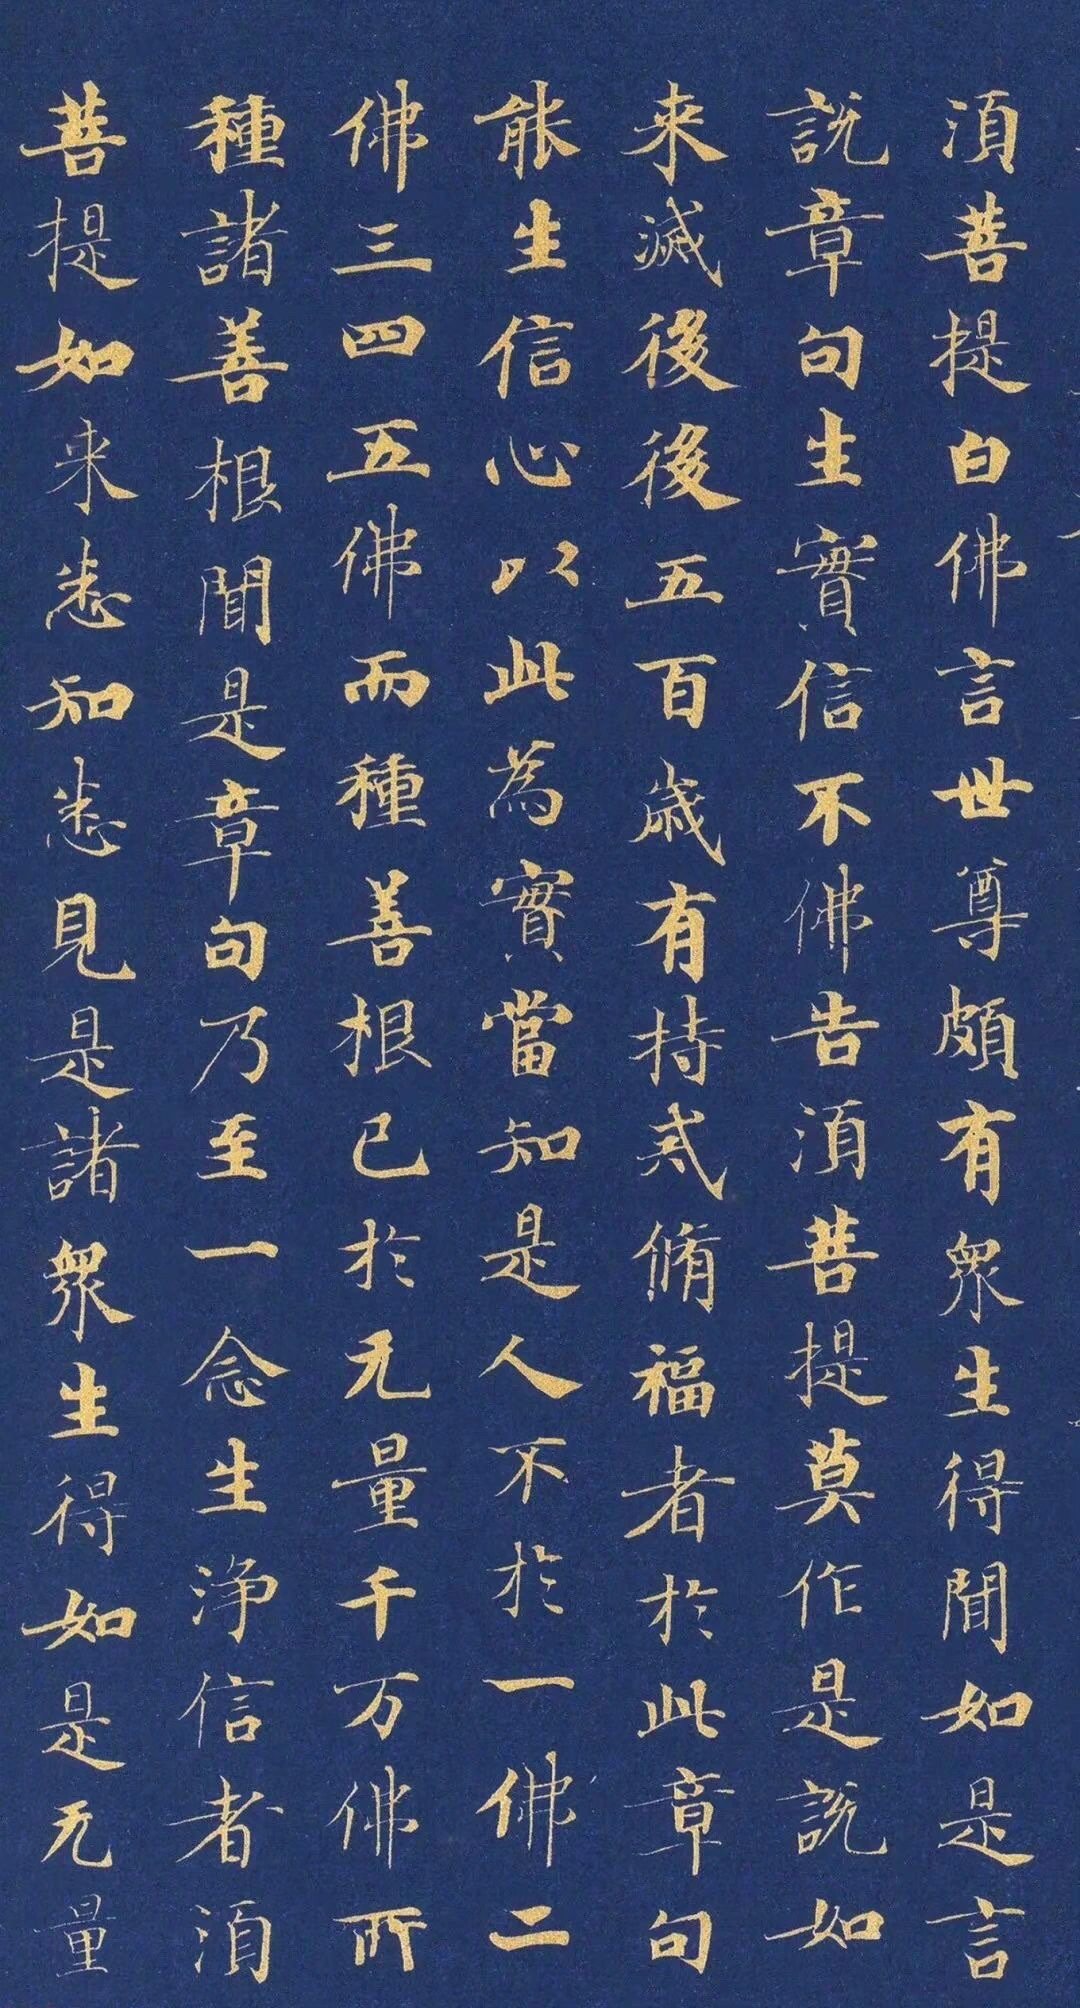 湏菩提白佛言世尊頗有衆生得聞如是言
說章句生實信不佛告湏菩提莫作是說如
来滅後後五百歲有持戒脩福者於此章句
能生信心以此為實當知是人不於一佛二
佛三四五佛而種善根已於无量千万佛所
種諸善根聞是章句乃至一念生浄信者湏
菩提如来悉知悉見是諸衆生得如是无量